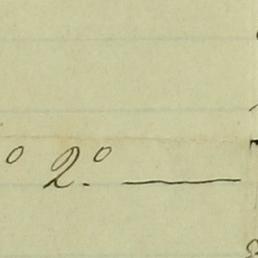 º 2.º —